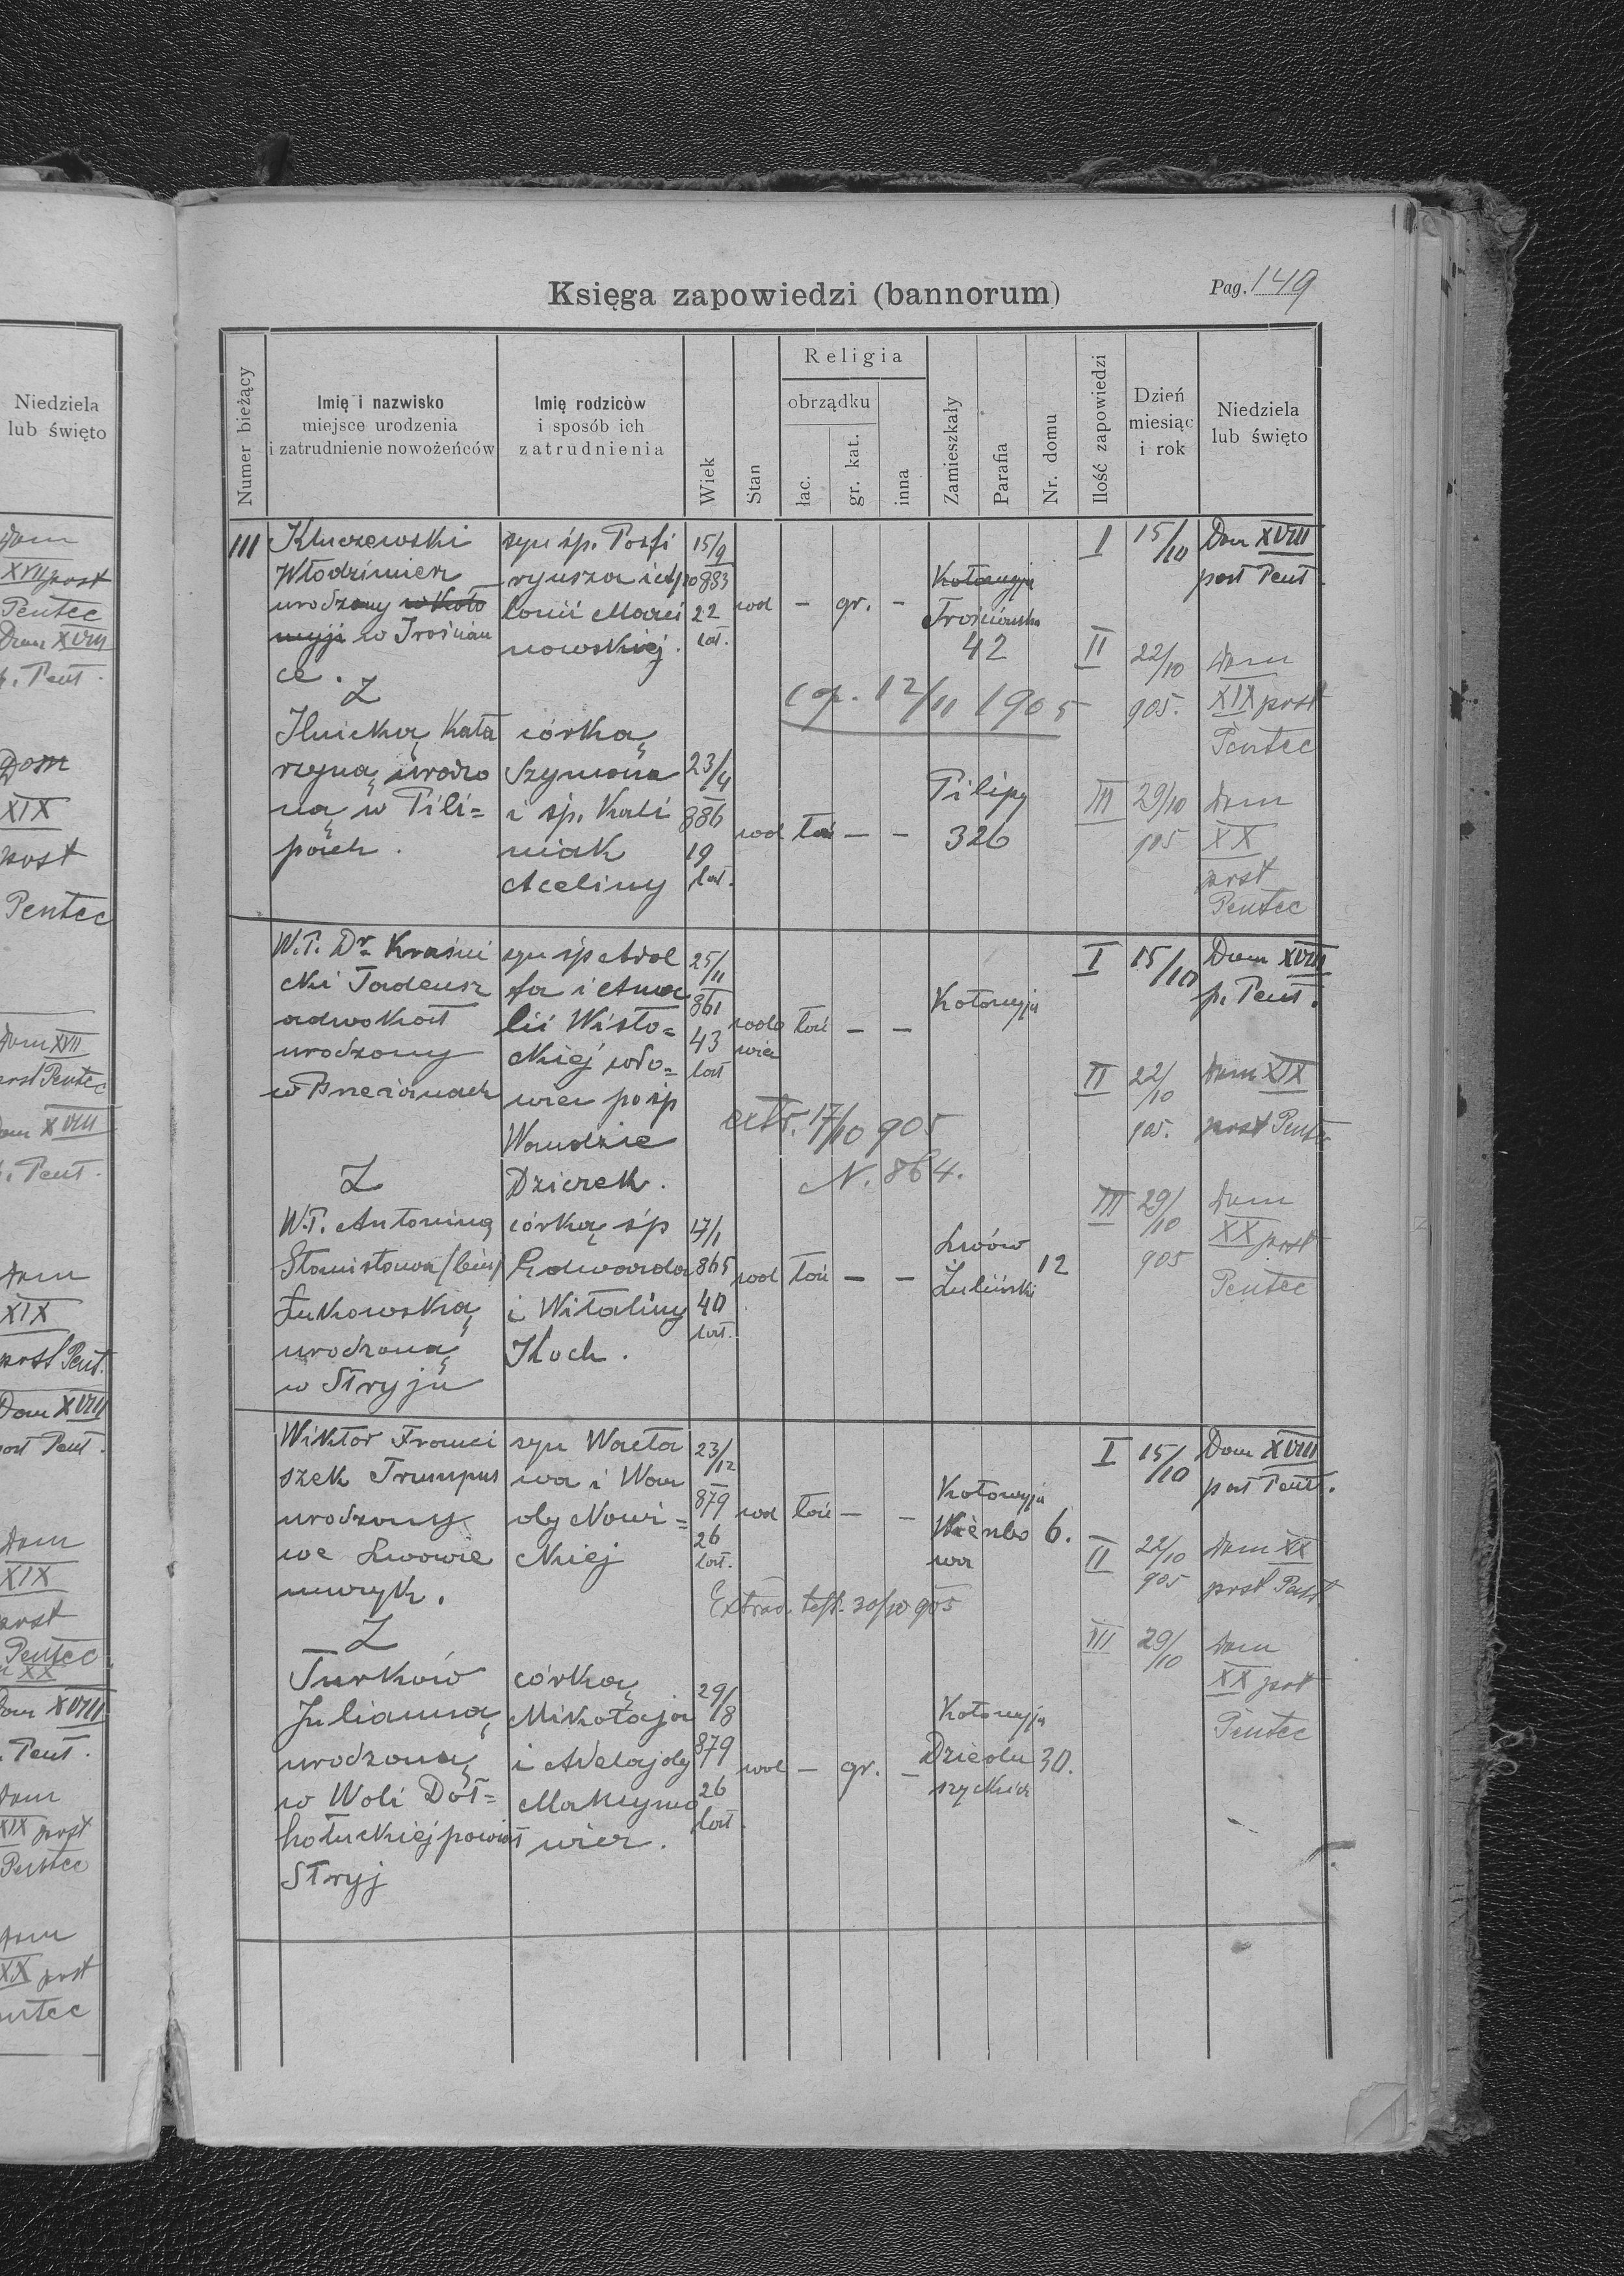 Księga zapowiedzi (bannorum)
Pag. 149
Numer bieżący
Imię i nazwisko
miejsce urodzenia
i zatrudnienie nowożeńców
Imię rodziców
i sposób ich
zatrudnienia
Wiek
Stan
Religia
obrządku
łac.
gr. kat.
inna
Zamieszkały
Parafia
Nr. domu
Ilość zapowiedzi
Dzień
miesiąc
i rok
Niedziela
lub święto
III
Kluczewski
Włodzimierz
urodzony w Koło
myji w Trościan
ce.
Z
Ilnicką Kata
rzyną urodzo
ną w Pili=
pach.
syn śp. Porfi
ryusza i Apo
lonii Marci
nowskiej.
córką
Szymona
i śp. Kali
niak
Aceliny
15/9
883
22
lat.
23/4
886
19
lat.
wol
-
gr.
-
wol
łać
-
-
Kołomyja
Trościanka
42
cop. 12/11 1905
Pilipy
326
I 15/10 Dom XVIII
post Pent.
II 22/10 Dom
905. XIX post
Pentec
III 29/10 Dom
905 XX
post
Pentec
W.P. Dr. Kraśni
cki Tadeusz
adwokat
urodzony
w Brzeżanach
Z
W.P. Antoniną
Stanisława (bim)
Żukowską
urodzoną
w Stryju
syn śp Adol
fa i Ama
lii Wisło=
ckiej wdo=
wiec po śp
Wandzie
Dziczek.
córką śp
Edwarda
i Witaliny
Hoch.
25/11
861
43
lat
17/1
865
40
lat.
wdo
wiec
łać
-
-
wol
łać
-
-
Kołomyja
extr. 17/10 905
N. 864.
Lwów
Żuliński
12
I 15/10 Dom XVIII
p. Pent.
II 22/10 Dom XIX
905. post Pentec
III 29/10 Dom
905 XX post
Pentec
Wiktor Franci
szek Trumpus
urodzony
we Lwowie
muzyk.
Z
Turków
Julianną
urodzoną
w Woli Doł=
hołuckiej powiat
Stryj
syn Wacła
wa i Wan
dy Nowi=
ckiej
córką
Mikołaja
i Adelajdy
Maksymo
wicz.
23/12
879
26
lat.
29/8
879
26
lat.
wol
łać
-
-
wol
-
gr.
-
Kołomyja
6.
Extrad. test. 30/10 905
Kołomyja
Dziedu
szyckich
30.
I 15/10 Dom XVIII
post Pent.
II 22/10 Dom XX
905 post Pent
III 29/10 Dom
XX post
Pentec
Niedziela
lub święto
Dom
XVII post
Pentec
Dom XVIII
p. Pent.
Dom
XIX
post
Pentec
Dom XVII
post Pentec
Dom XVIII
p. Pent.
Dom
XIX
post Pent.
Dom XVIII
post Pent.
Dom
XIX
post
Pentec
XX
Dom XVIII
p. Pent.
Dom
XIX post
Pentec
Dom
XX post
Pentec